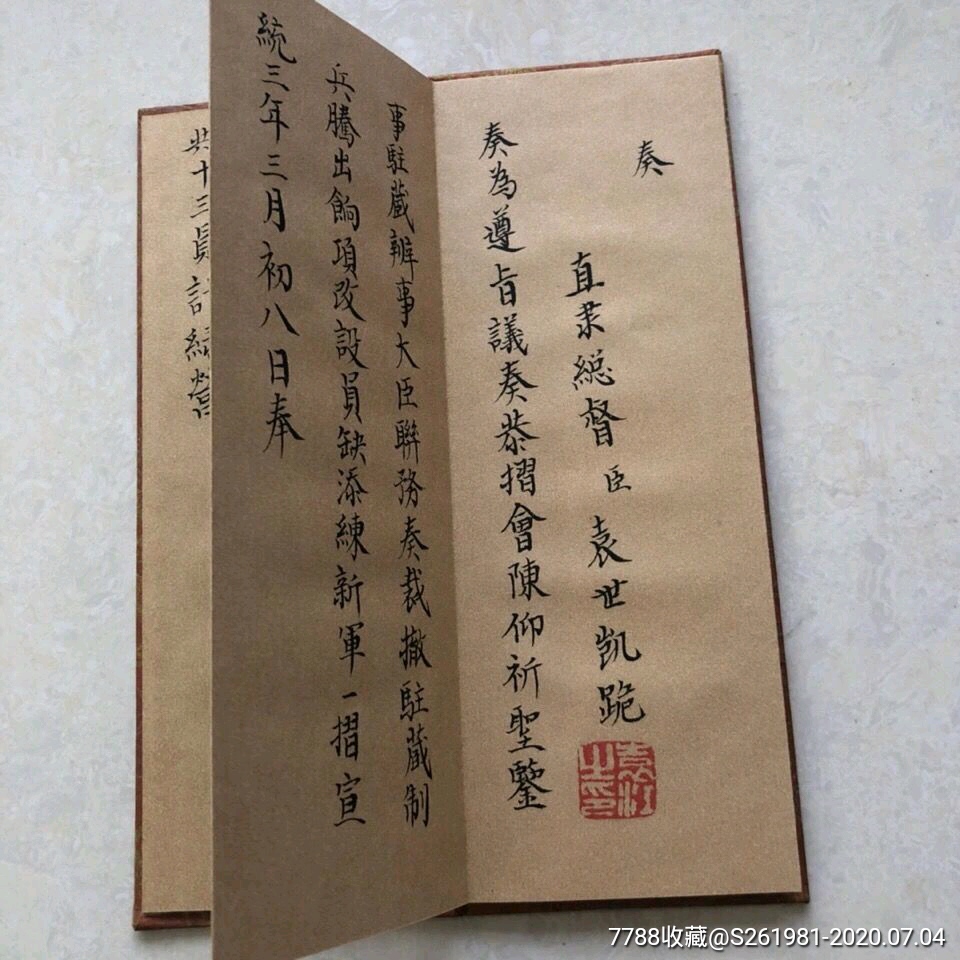 奏
直隶總督臣袁世凱跪
奏為遵旨議奏恭摺會陳仰祈聖鑒
事駐藏辦事大臣聯務奏裁撤駐藏制
兵騰出餉項改設員缺添練新軍一摺宣
統三年三月初八日奉
共十三員計綠營
7788收藏@S261981-2020.07.04